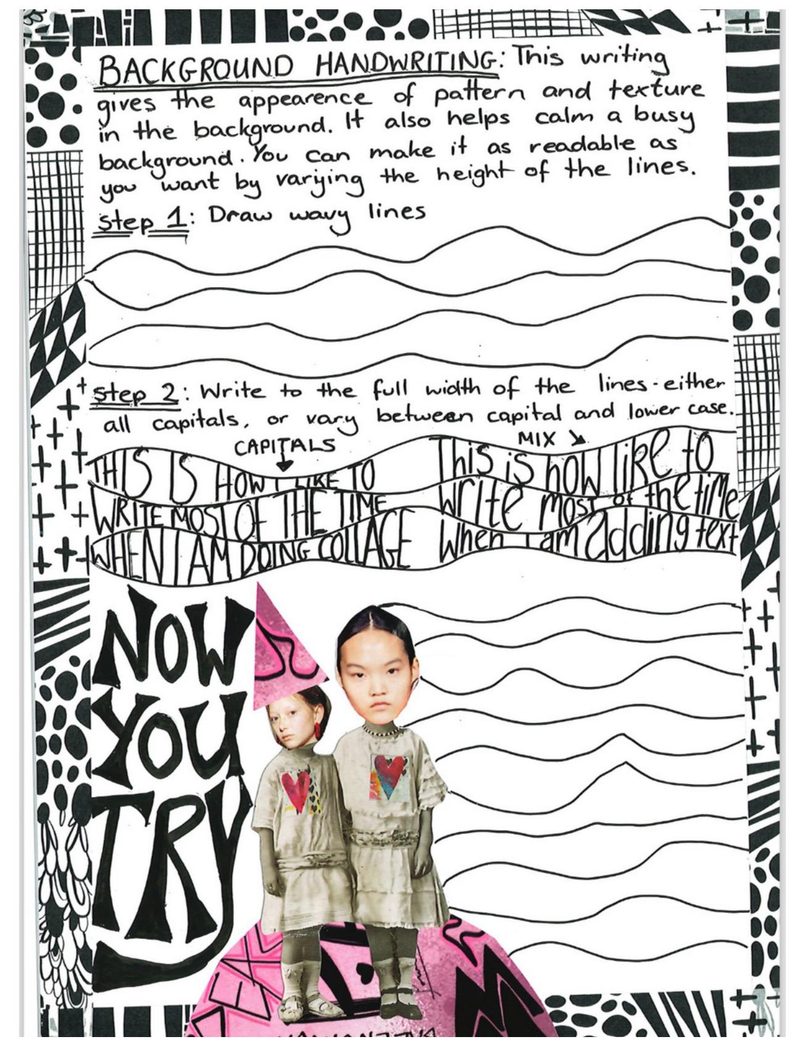 BACKGROUND HANDWRITING: This writing
gives the appearence of pattern and texture
in the background. It also helps calm a busy
background. You can make it as readable as
you want by varying the height of the lines.
Step 1: Draw wavy lines
Step 2: Write to the full width of the lines - either
all capitals, or vary between capital and lower case.
CAPITALS
MIX
THIS IS HOW I LIKE TO
WRITE MOST OF THE TIME
WHEN I AM DOING COLLAGE
This is how I like to
write most of the time
when I am adding text
NOW
YOU
TRY